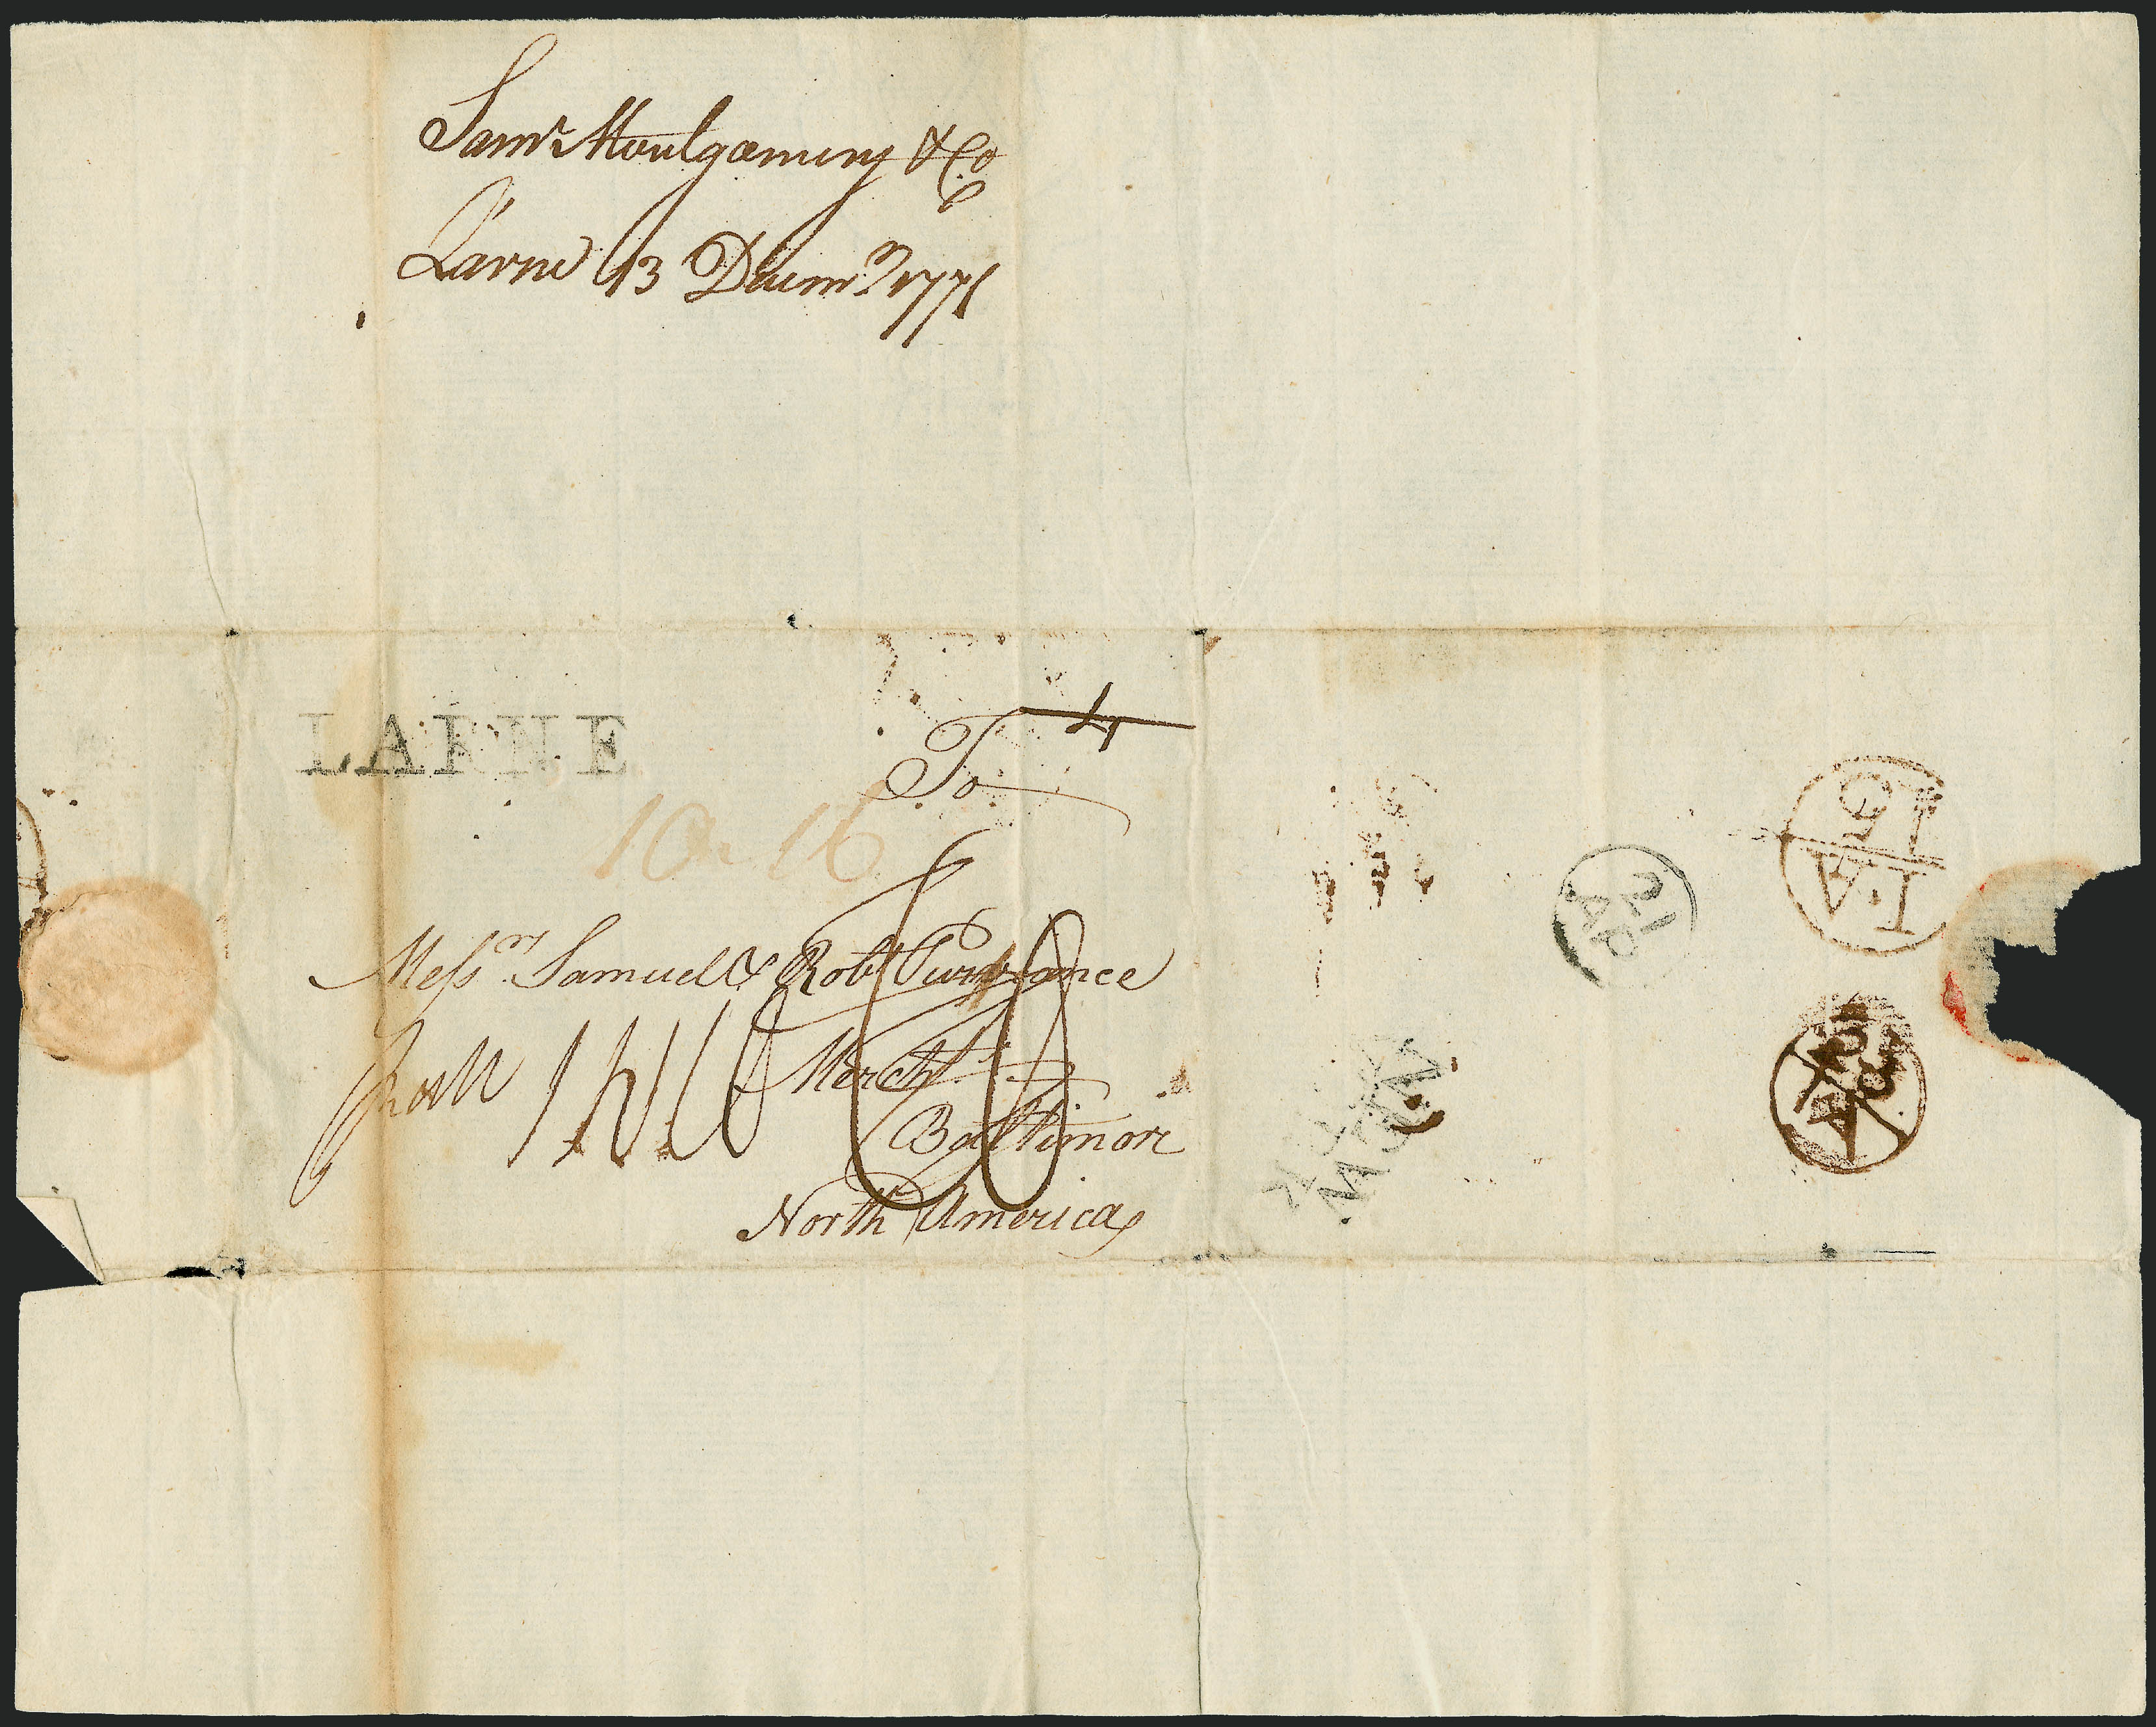 Sam.l Montgomery & Co
Larne 13 Decem.r 1771
LARNE
4
To
10 16
Mess.rs Samuel & Rob.t Purviance
Merch.ts
Baltimore
North America
NEW
21
AP